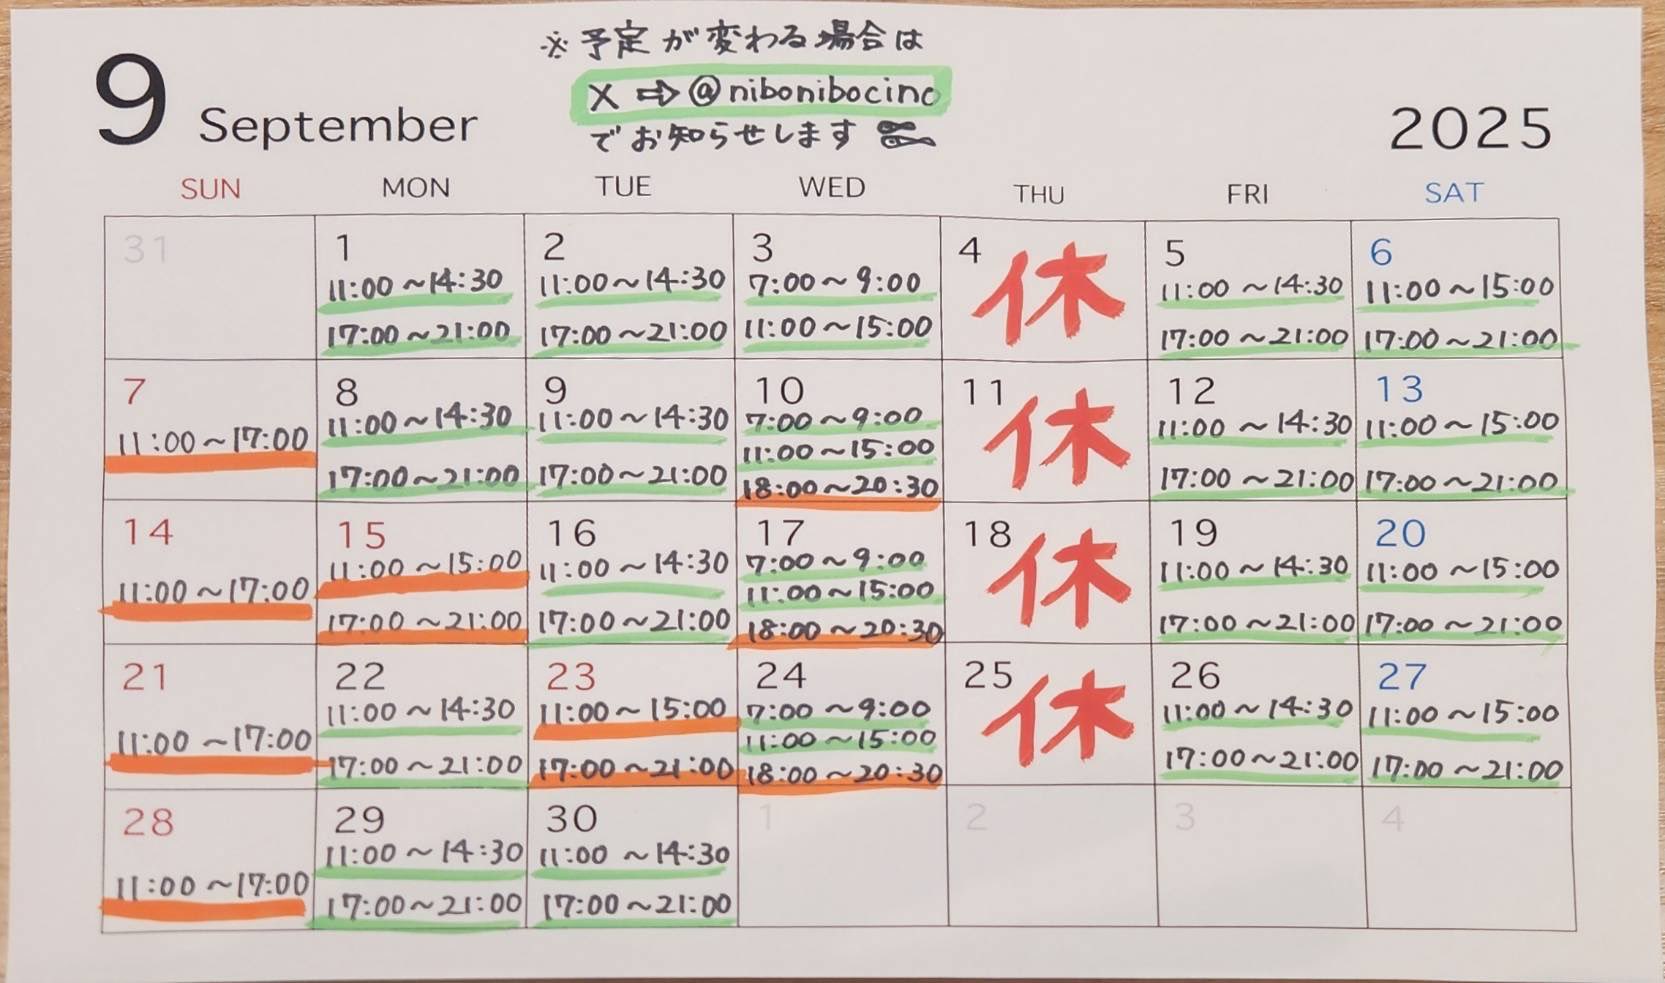 ※予定が変わる場合は
X ⇨ @nibonibocino
でお知らせします
9 September
2025
SUN MON TUE WED THU FRI SAT
31 1 2 3 4 5 6
11:00〜14:30 11:00〜14:30 7:00〜9:00 休 11:00〜14:30 11:00〜15:00
17:00〜21:00 17:00〜21:00 11:00〜15:00 17:00〜21:00 17:00〜21:00
7 8 9 10 11 12 13
11:00〜17:00 11:00〜14:30 11:00〜14:30 7:00〜9:00 休 11:00〜14:30 11:00〜15:00
11:00〜15:00
17:00〜21:00 17:00〜21:00 18:00〜20:30 17:00〜21:00 17:00〜21:00
14 15 16 17 18 19 20
11:00〜17:00 11:00〜15:00 11:00〜14:30 7:00〜9:00 休 11:00〜14:30 11:00〜15:00
11:00〜15:00
17:00〜21:00 17:00〜21:00 18:00〜20:30 17:00〜21:00 17:00〜21:00
21 22 23 24 25 26 27
11:00〜17:00 11:00〜14:30 11:00〜15:00 7:00〜9:00 休 11:00〜14:30 11:00〜15:00
11:00〜15:00
17:00〜21:00 17:00〜21:00 18:00〜20:30 17:00〜21:00 17:00〜21:00
28 29 30 1 2 3 4
11:00〜17:00 11:00〜14:30 11:00〜14:30
17:00〜21:00 17:00〜21:00